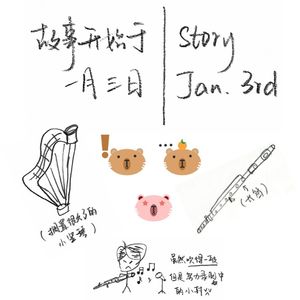 故事开始于
一月三日
Story
Jan. 3rd
!
...
(搁置很久了的
小竖琴)
(长笛)
虽然吹得一般
但是努力录制中
的小